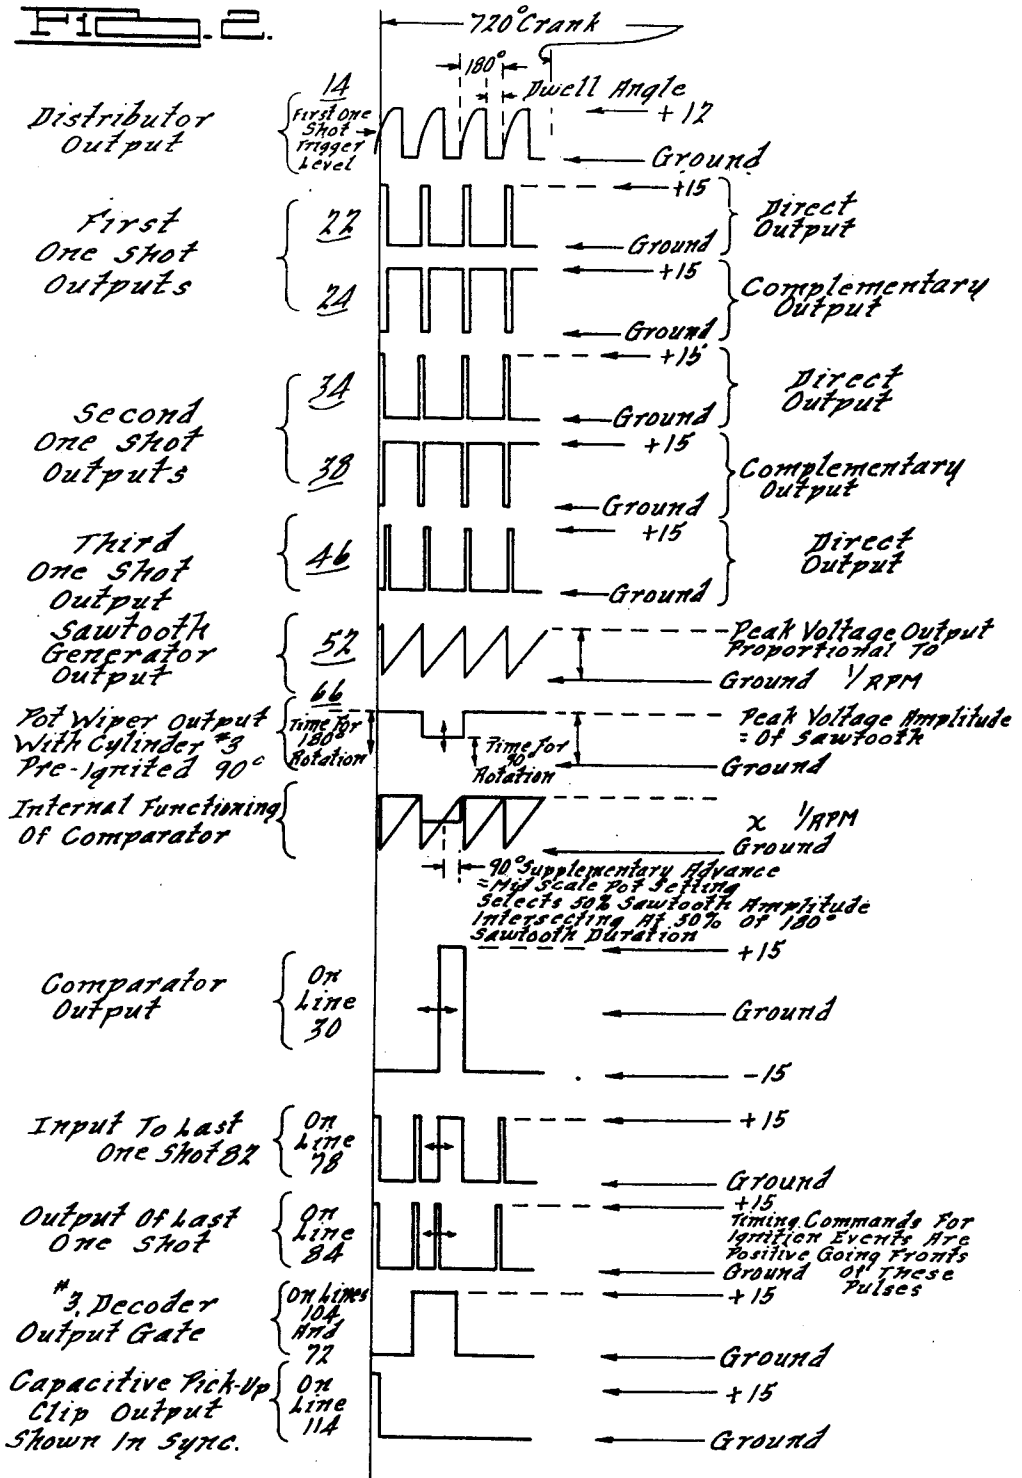 FIG. 2.
720° Crank
180°
Dwell Angle
Distributor
Output
14
First One
Shot
Trigger
Level
+12
Ground
First
One Shot
Outputs
22
+15
Ground
Direct
Output
24
+15
Ground
Complementary
Output
Second
One Shot
Outputs
34
+15
Ground
Direct
Output
38
+15
Ground
Complementary
Output
Third
One Shot
Output
46
+15
Ground
Direct
Output
Sawtooth
Generator
Output
52
Peak Voltage Output
Proportional To
Ground 1/RPM
Pot Wiper Output
With Cylinder #3
Pre-Ignited 90°
66
Time For
180°
Rotation
Time For
90°
Rotation
Peak Voltage Amplitude
= Of Sawtooth
Ground
Internal Functioning
Of Comparator
x 1/RPM
Ground
90° Supplementary Advance
=Mid Scale Pot Setting
Selects 50% Sawtooth Amplitude
Intersecting At 50% Of 180°
Sawtooth Duration
Comparator
Output
On
Line
30
+15
Ground
-15
Input To Last
One Shot 82
On
Line
78
+15
Ground
Output Of Last
One Shot
On
Line
84
+15
Timing Commands For
Ignition Events Are
Positive Going Fronts
Ground Of These
Pulses
#3 Decoder
Output Gate
On Lines
104
And
72
+15
Ground
Capacitive Pick-Up
Clip Output
Shown In Sync.
On
Line
114
+15
Ground